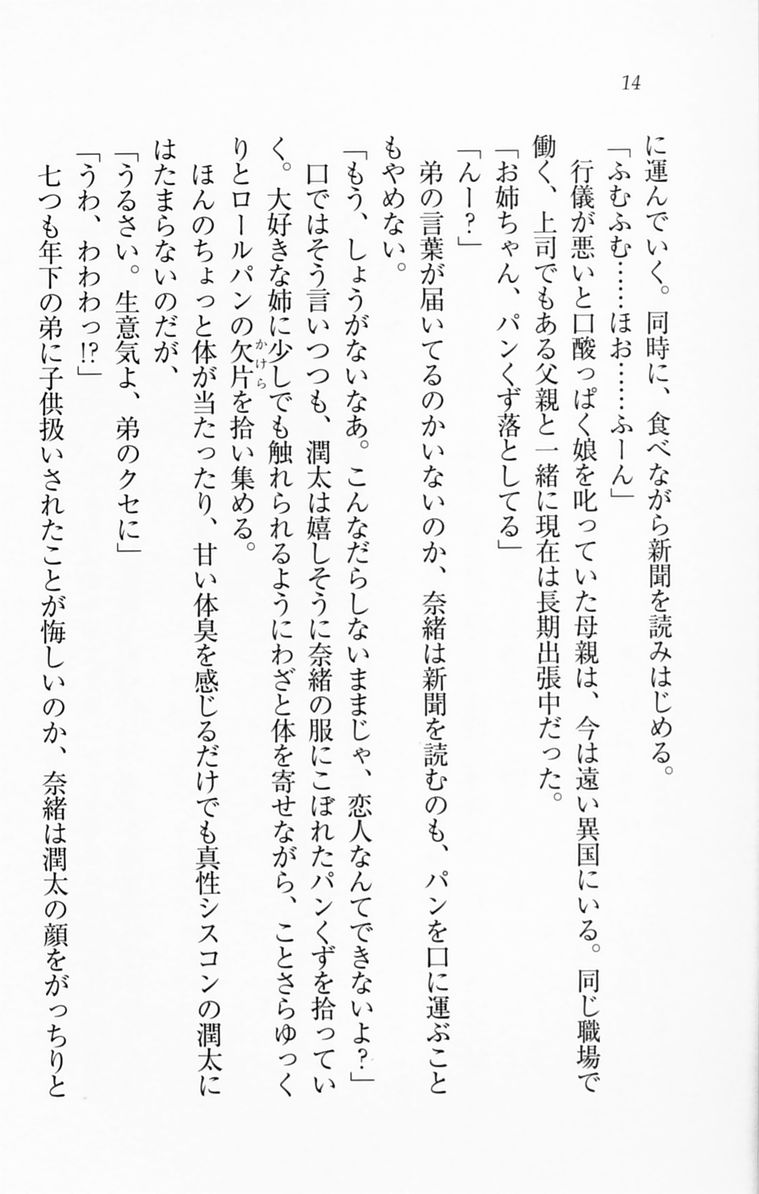 14
に運んでいく。同時に、食べながら新聞を読みはじめる。
「ふむふむ……ほお……ふーん」
行儀が悪いと口酸っぱく娘を叱っていた母親は、今は遠い異国にいる。同じ職場で
働く、上司でもある父親と一緒に現在は長期出張中だった。
「お姉ちゃん、パンくず落としてる」
「んー？」
弟の言葉が届いてるのかいないのか、奈緒は新聞を読むのも、パンを口に運ぶこと
もやめない。
「もう、しょうがないなあ。こんなだらしないままじゃ、恋人なんてできないよ？」
口ではそう言いつつも、潤太は嬉しそうに奈緒の服にこぼれたパンくずを拾ってい
く。大好きな姉に少しでも触れられるようにわざと体を寄せながら、ことさらゆっく
りとロールパンの欠片かけらを拾い集める。
ほんのちょっと体が当たったり、甘い体臭を感じるだけでも真性シスコンの潤太に
はたまらないのだが、
「うるさい。生意気よ、弟のクセに」
「うわ、わわわっ!?」
七つも年下の弟に子供扱いされたことが悔しいのか、奈緒は潤太の顔をがっちりと